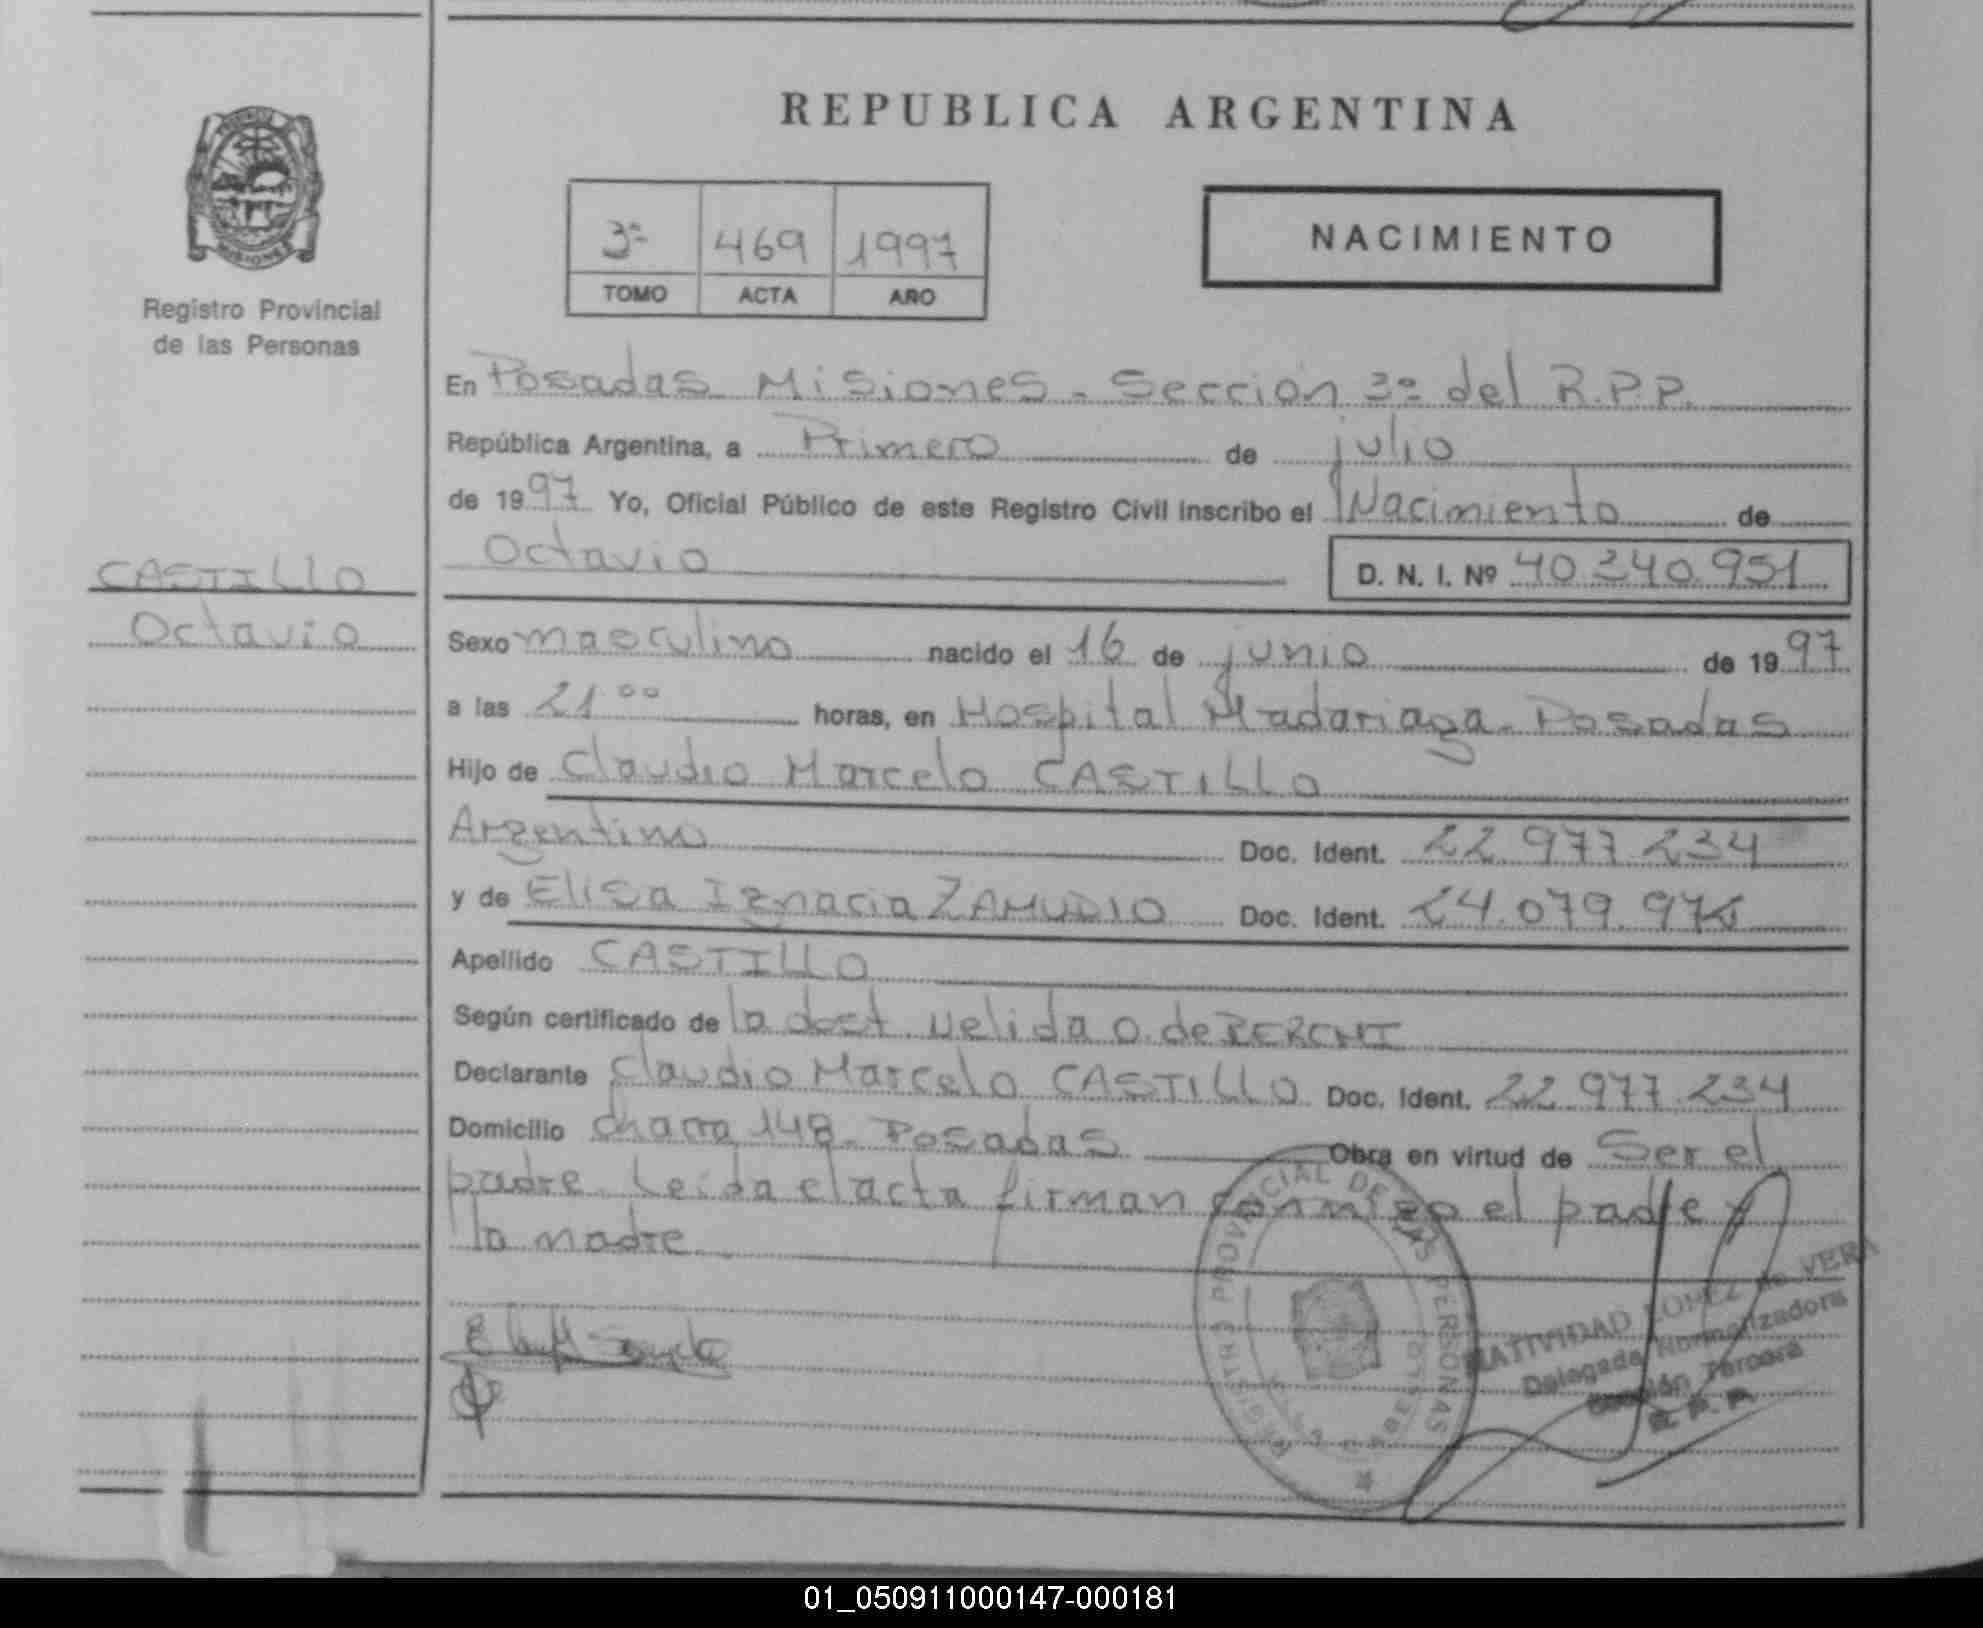 REPUBLICA ARGENTINA
PROVINCIA
MISIONES
Registro Provincial
de las Personas
3º 469 1997
TOMO ACTA AÑO
NACIMIENTO
En Posadas Misiones - Sección 3º del R.P.P.
República Argentina, a Primero de julio
de 1997 Yo, Oficial Público de este Registro Civil inscribo el Nacimiento de
Octavio D. N. I. Nº 40.340.951
CASTILLO
Octavio
Sexo masculino nacido el 16 de junio de 1997
a las 21 00 horas, en Hospital Madariaga - Posadas
Hijo de Claudio Marcelo CASTILLO
Argentino Doc. Ident. 22.977.234
y de Elisa Ignacia ZAMUDIO Doc. Ident. 24.079.975
Apellido CASTILLO
Según certificado de la dost. Nelida O. de
Declarante Claudio Marcelo CASTILLO Doc. Ident. 22.977.234
Domicilio chacra 148 - Posadas Obra en virtud de Ser el
padre. Leida el acta firman conmigo el padre y
la madre
REGISTRO PROVINCIAL DE LAS PERSONAS
NATIVIDAD LOPEZ de VERA
Delegada Normalizadora
Sección Tercera
R. P. P.
01_050911000147-000181